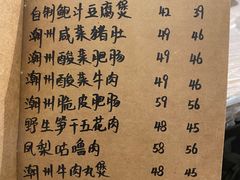 自制鲍汁豆腐煲 42 39
潮州咸菜猪肚 49 46
潮州酸菜肥肠 49 46
潮州酸菜牛肉 49 46
潮州脆皮肥肠 59 56
野生笋干五花肉 48 45
凤梨咕噜肉 58 56
潮州牛肉丸煲 48 45